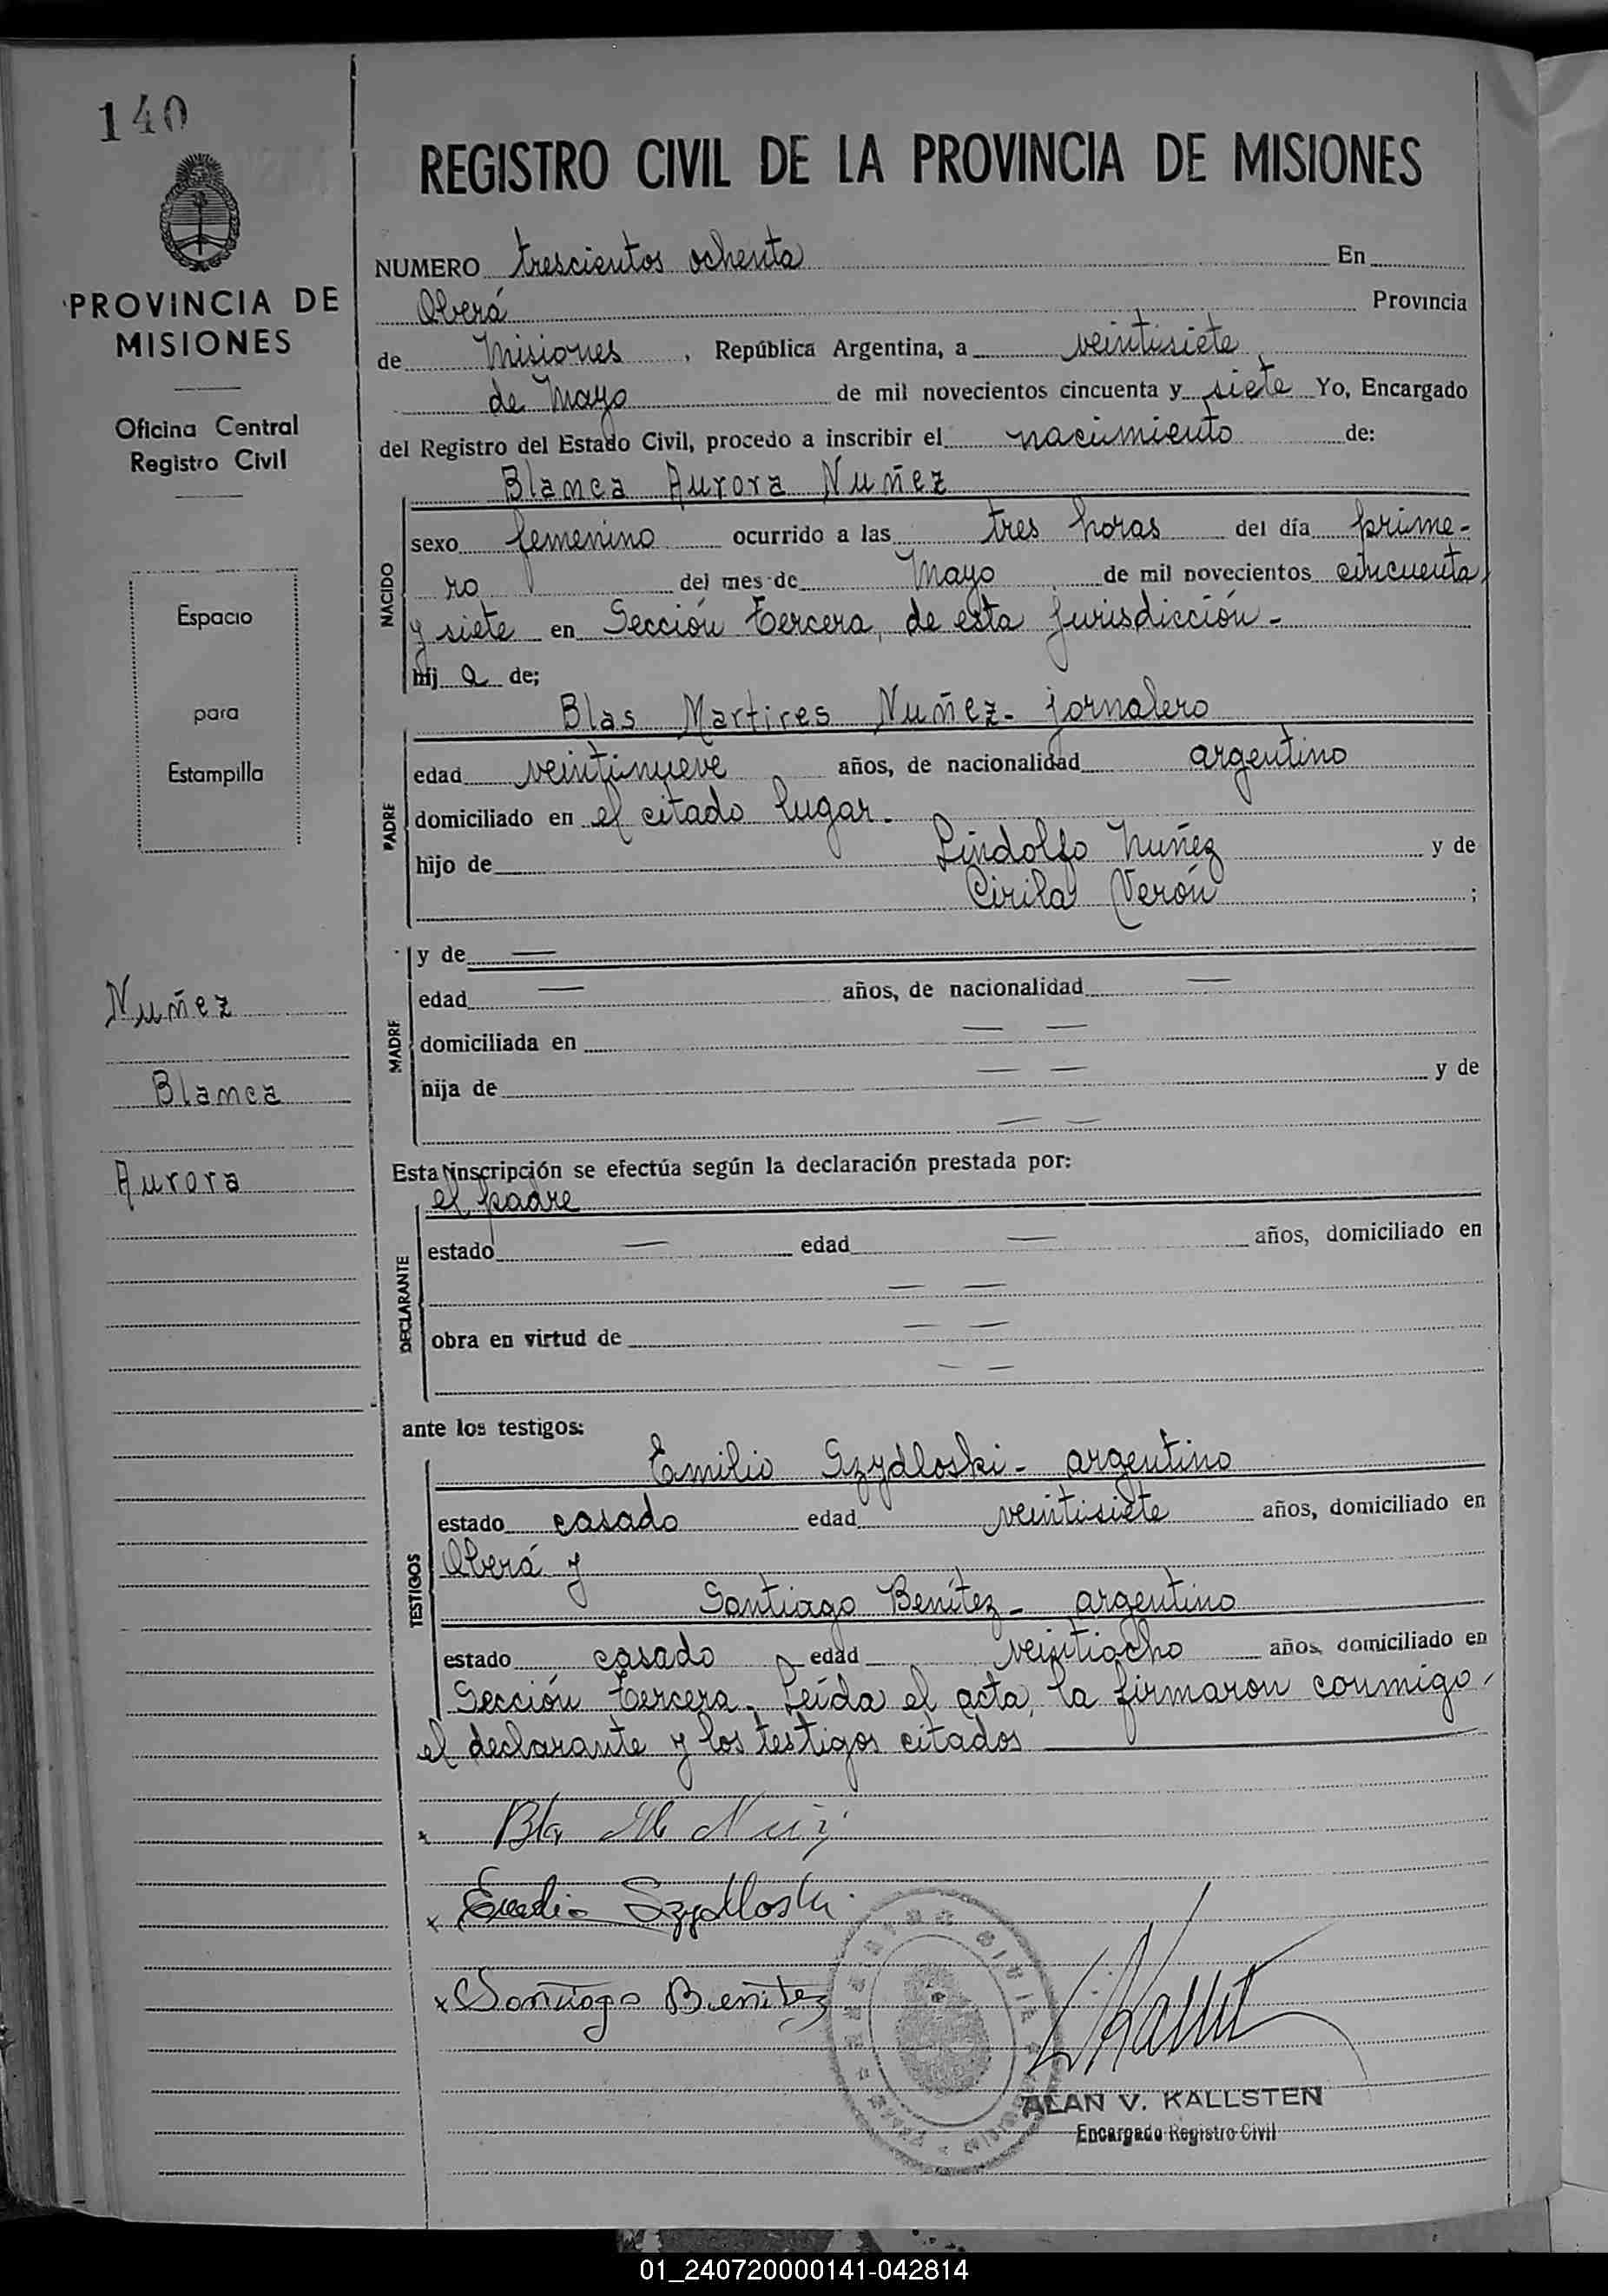 140
PROVINCIA DE
MISIONES
Oficina Central
Registro Civil
Espacio
para
Estampilla
Nuñez
Blanca
Aurora
REGISTRO CIVIL DE LA PROVINCIA DE MISIONES
NUMERO trescientos ochenta En
Oberá Provincia
de Misiones, República Argentina, a veintisiete
de Mayo de mil novecientos cincuenta y siete Yo, Encargado
del Registro del Estado Civil, procedo a inscribir el nacimiento de:
Blanca Aurora Nuñez
NACIDO
sexo femenino ocurrido a las tres horas del día prime-
ro del mes de Mayo de mil novecientos cincuenta
y siete en Sección Tercera, de esta jurisdicción.-
hij a de;
Blas Martires Nuñez- jornalero
PADRE
edad veintinueve años, de nacionalidad argentino
domiciliado en el citado lugar.
hijo de Lindolfo Nuñez y de
Cirila Verón ;
MADRE
y de —
edad — años, de nacionalidad —
domiciliada en — —
hija de — — y de
— —
Esta inscripción se efectúa según la declaración prestada por:
el padre
DECLARANTE
estado — edad — años, domiciliado en
— —
obra en virtud de — —
— —
ante los testigos:
TESTIGOS
Emilio Szydloski- argentino
estado casado edad veintisiete años, domiciliado en
Oberá y
Santiago Benítez- argentino
estado casado edad veintiocho años, domiciliado en
Sección Tercera. Leída el acta, la firmaron conmigo,
el declarante y los testigos citados
x Szydloski
x Santiago Benitez
ALAN V. KALLSTEN
Encargado Registro Civil
01_240720000141-042814